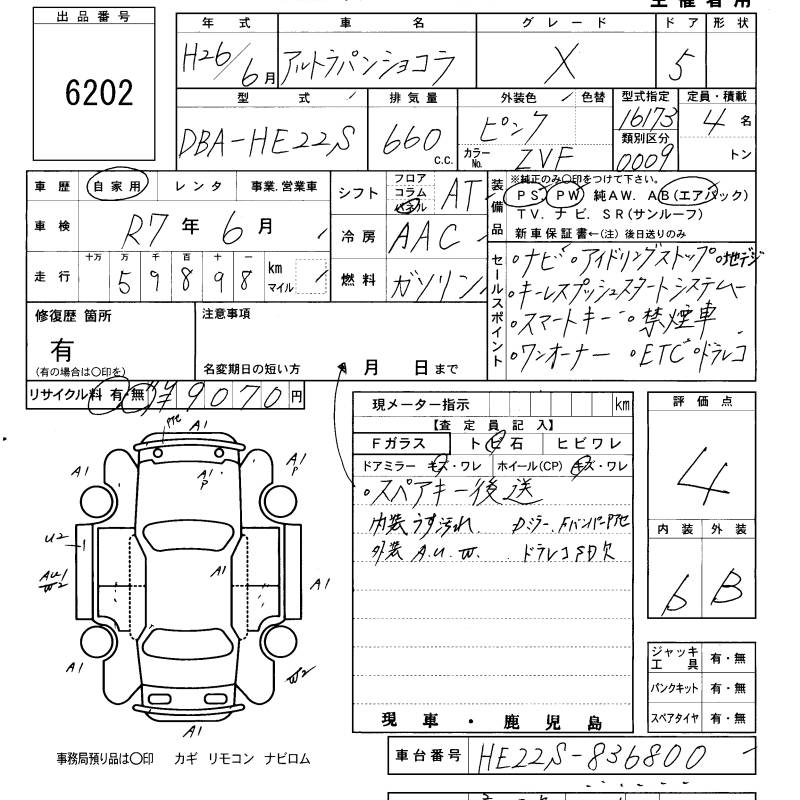 出品番号
6202
年式 車名 グレード ドア 形状
H26/6月 アルトラパンショコラ X 5
型式 排気量 外装色 色替 型式指定 定員・積載
DBA-HE22S 660 C.C. ピンク 16173 4名
カラーNo. ZVF 類別区分 0009 トン
車歴 自家用 レンタ 事業.営業車
シフト フロア コラム パネル AT
装備品 ※純正のみ○印をつけて下さい。
PS. PW 純AW. AB(エアバック)
TV. ナビ. SR(サンルーフ)
新車保証書←(注) 後日送りのみ
車検 R7年6月
冷房 AAC
走行 十万 万 千 百 十 一 km マイル
59898
燃料 ガソリン
セールスポイント
・ナビ ・アイドリングストップ ・地デジ
・キーレスプッシュスタートシステム
・スマートキー ・禁煙車
・ワンオーナー ・ETC ・ドラレコ
修復歴 箇所
有
(有の場合は○印を)
注意事項
名変期日の短い方 月 日まで
リサイクル料 有 無 ¥9070円
現メーター指示 km
【査定員記入】
Fガラス トビ石 ヒビワレ
ドアミラー キズ・ワレ ホイール(CP) キズ・ワレ
・スペアキー後送
内装 うす汚れ. Dミラー. Fバンパーアセ
外装 A.U.W. ドラレコSD欠
現車・鹿児島
評価点
4
内装 外装
b B
ジャッキ工具 有・無
パンクキット 有・無
スペアタイヤ 有・無
A1
A1
A1
P
A1
P
U2
A1
AU1
W2
A1
A1
W2
A1
事務局預り品は○印 カギ リモコン ナビロム
車台番号 HE22S-836800